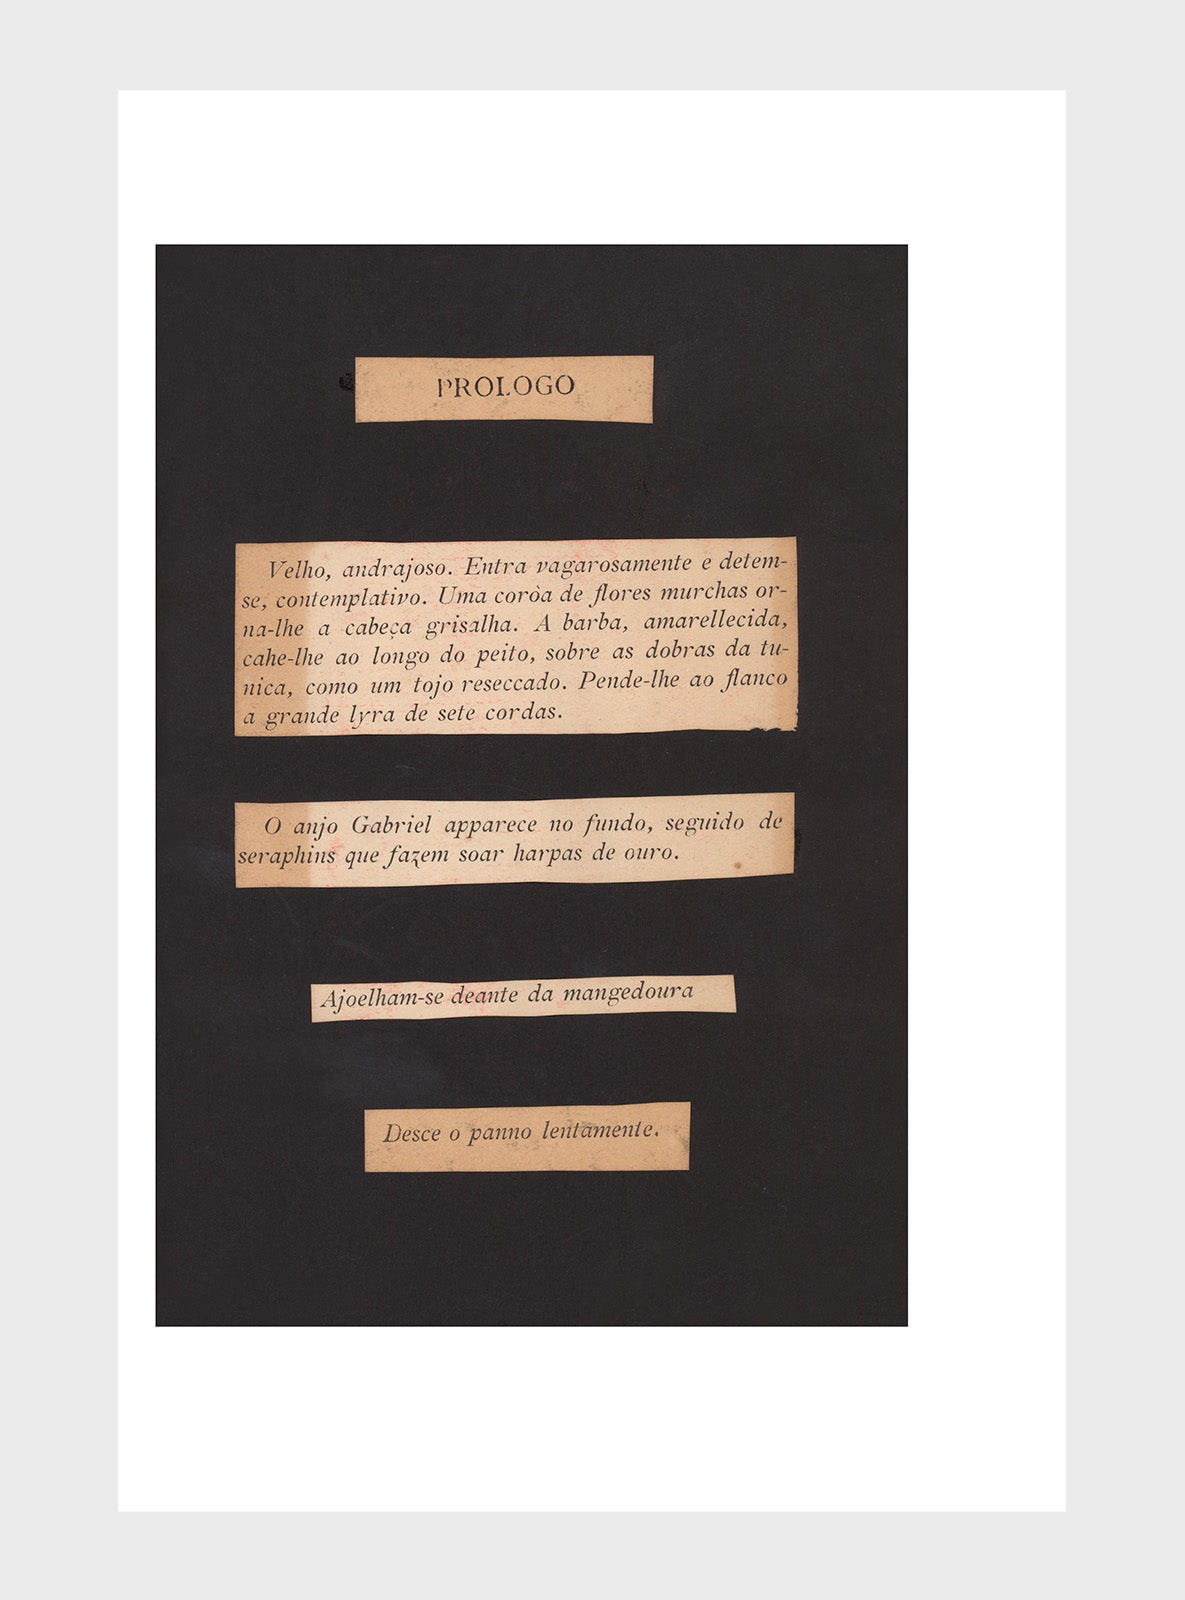 PROLOGO
Velho, andrajoso. Entra vagarosamente e detem-
se, contemplativo. Uma coròa de flores murchas or-
na-lhe a cabeça grisalha. A barba, amarellecida,
cahe-lhe ao longo do peito, sobre as dobras da tu-
nica, como um tojo reseccado. Pende-lhe ao flanco
a grande lyra de sete cordas.
O anjo Gabriel apparece no fundo, seguido de
seraphins que fazem soar harpas de ouro.
Ajoelham-se deante da mangedoura
Desce o panno lentamente.